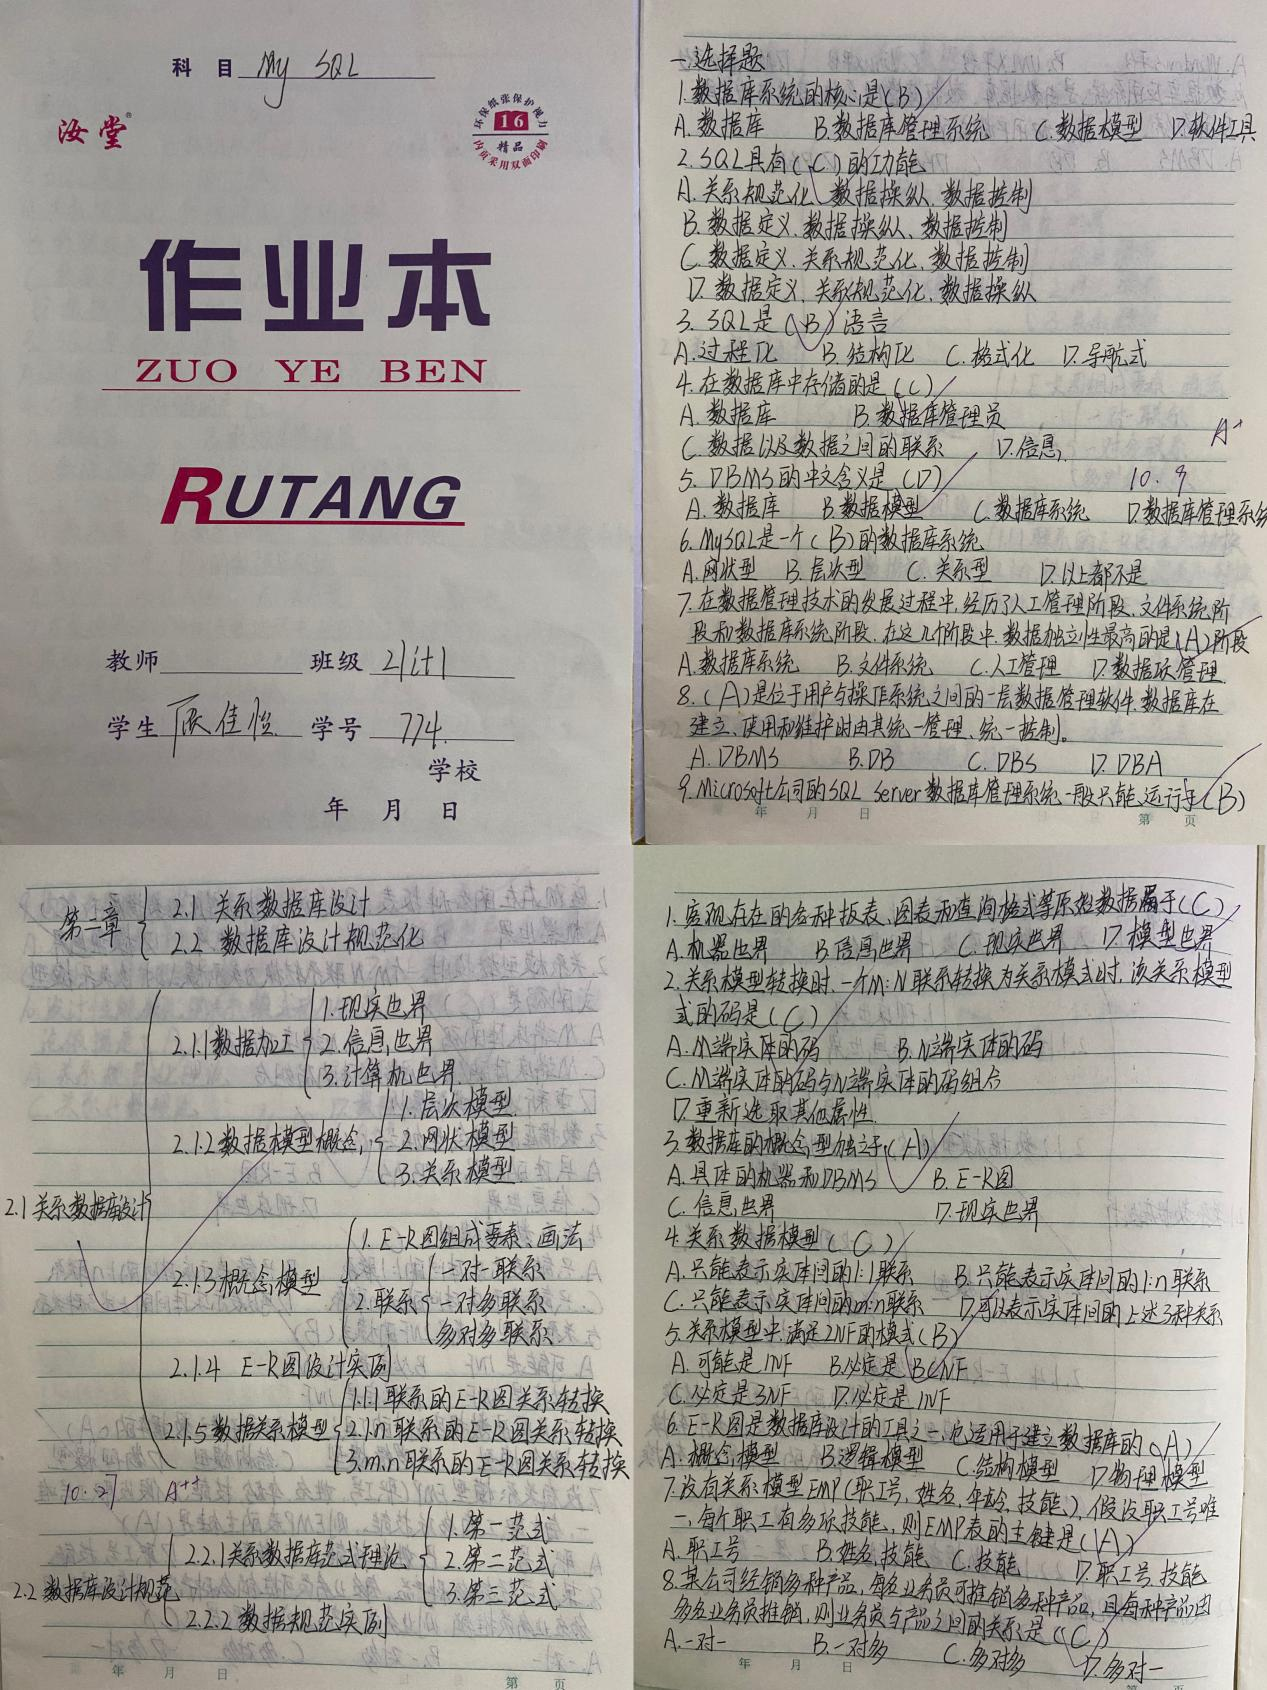 科 目 My SQL
汝堂®
环保纸张保护视力
16
精品
内页采用双面印刷
作业本
ZUO YE BEN
RUTANG
教师 班级 21计1
学生 学号 774.
学校
年 月 日
一.选择题
1.数据库系统的核心是(B)
A.数据库 B.数据库管理系统 C.数据模型 D.软件工具
2.SQL具有(C)的功能
A.关系规范化、数据操纵、数据控制
B.数据定义、数据操纵、数据控制
C.数据定义、关系规范化、数据控制
D.数据定义、关系规范化、数据操纵
3.SQL是(B)语言
A.过程化 B.结构化 C.格式化 D.导航式
4.在数据库中存储的是(C)
A.数据库 B.数据库管理员
C.数据以及数据之间的联系 D.信息
A+
5.DBMS的中文含义是(D)
10.9
A.数据库 B.数据模型 C.数据库系统 D.数据库管理系统
6.MySQL是一个(B)的数据库系统
A.网状型 B.层次型 C.关系型 D.以上都不是
7.在数据管理技术的发展过程中,经历了人工管理阶段、文件系统阶
段和数据库系统阶段.在这几个阶段中,数据独立性最高的是(A)阶段
A.数据库系统 B.文件系统 C.人工管理 D.数据项管理
8.(A)是位于用户与操作系统之间的一层数据管理软件.数据库在
建立、使用和维护时由其统一管理、统一控制。
A.DBMS B.DB C.DBS D.DBA
9.Microsoft公司的SQL Server数据库管理系统一般只能运行于(B)
年 月 日 第 页
第二章
2.1 关系数据库设计
2.2 数据库设计规范化
2.1关系数据库设计
2.1.1数据加工
1.现实世界
2.信息世界
3.计算机世界
2.1.2数据模型概念
1.层次模型
2.网状模型
3.关系模型
2.1.3概念模型
1.E-R图组成要素、画法
2.联系
一对一联系
一对多联系
多对多联系
2.1.4 E-R图设计实例
2.1.5数据关系模型
1.1:1联系的E-R图关系转换
2.1:n联系的E-R图关系转换
3.m:n联系的E-R图关系转换
10.27 A++
2.2数据库设计规范
2.2.1关系数据库范式理论
1.第一范式
2.第二范式
3.第三范式
2.2.2数据规范实例
年 月 日 第 页
1.客观存在的各种报表、图表和查询格式等原始数据属于(C)
A.机器世界 B.信息世界 C.现实世界 D.模型世界
2.关系模型转换时,一个M:N联系转换为关系模式时,该关系模型
式的码是(C)
A.M端实体的码 B.N端实体的码
C.M端实体的码与N端实体的码组合
D.重新选取其他属性
3.数据库的概念型独立于(A)
A.具体的机器和DBMS B.E-R图
C.信息世界 D.现实世界
4.关系数据模型(C)
A.只能表示实体间的1:1联系 B.只能表示实体间的1:n联系
C.只能表示实体间的m:n联系 D.可以表示实体间的上述3种关系
5.关系模型中,满足2NF的模式(B)
A.可能是1NF B.必定是BCNF
C.必定是3NF D.必定是1NF
6.E-R图是数据库设计的工具之一,它适用于建立数据库的(A)
A.概念模型 B.逻辑模型 C.结构模型 D.物理模型
7.设有关系模型EMP(职工号,姓名,年龄,技能),假设职工号唯
一,每个职工有多项技能,则EMP表的主键是(A)
A.职工号 B.姓名,技能 C.技能 D.职工号,技能
8.某公司经销多种产品,每名业务员可推销多种产品,且每种产品由
多名业务员推销,则业务员与产品之间的关系是(C)
A.一对一 B.一对多 C.多对多 D.多对一
年 月 日 第 页